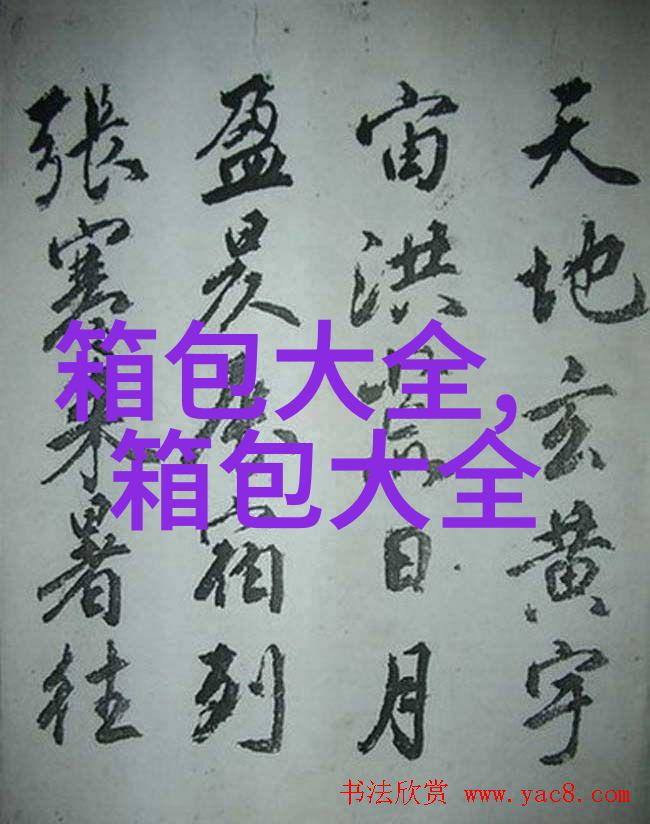 天地玄黄宇
宙洪荒日月
盈昃辰宿列
張寒来暑往
箱包大全,
箱包大全
书法欣赏 www.yac8.com